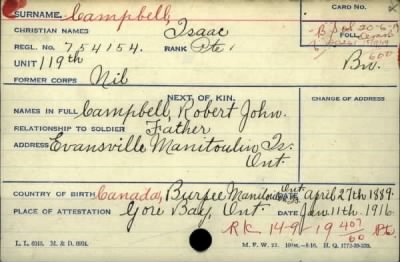 SURNAME. Campbell,
CARD NO.
CHRISTIAN NAMES Isaac
REGL. NO. 754154. RANK Pte.
FOLL.
UNIT 119th
Bn.
FORMER CORPS Nil
NEXT OF KIN.
CHANGE OF ADDRESS
NAMES IN FULL Campbell, Robert John.
RELATIONSHIP TO SOLDIER Father
ADDRESS Evansville Manitoulin Is.
Ont
COUNTRY OF BIRTH Canada, Burpee Manitoulin Ont DATE April 27th 1889.
PLACE OF ATTESTATION Gore Bay, Ont. DATE Jan 11th 1916
R/C 14-9-19 407/60 Pte.
M. F. W. 22.